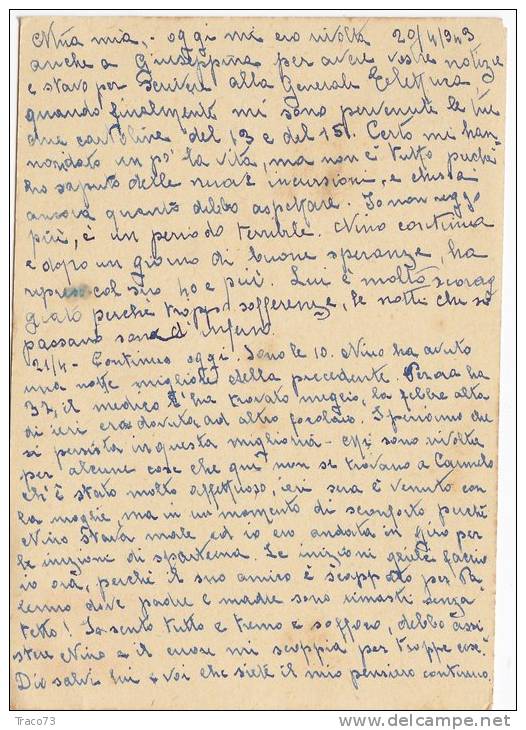 Nina mia, - oggi mi ero rivolta 20/4/943
anche a Giuseppina per avere vostre notizie
e stavo per scrivere alla Generale Elettrica
quando finalmente mi sono pervenute le tue
due cartoline del 13 e del 15. Certo mi han
mandato un pò la vita, ma non è tutto perchè
ho saputo delle nuove incursioni, e chissà
ancora quanto debbo aspettare. Io non reggo
più, è un periodo terribile. Nino continua
e dopo un giorno di buone speranze, ha
ripreso col suo 40 e più. Lui è molto scorag
giato perchè troppe sofferenze, le notti che si
passano sono d'inferno.
21/4 - Continuo oggi. Sono le 10. Nino ha avuto
una notte migliore della precedente. Per ora ha
37, il medico l'ha trovato meglio, la febbre alta
di ieri era dovuta ad altro focolaio. Speriamo che
si persista in questa miglioria - Mi sono rivolta
per alcune cose che qui non si trovano a Carmelo
ch'è stato molto affettuoso, ieri sera è venuto con
la moglie, ma in un momento di sconforto perchè
Nino stava male ed io ero andata in giro per
le iniezioni di sparteina. Le iniezioni gliele faccio
io ora, perchè il suo amico è scappato per Pa
lermo dove padre e madre sono rimasti senza
tetto! Io sento tutto e tremo e soffoco, debbo assi
stere Nino e il cuore mi scoppia per troppe cose.
Dio salvi lui e voi che siete il mio pensiero continuo.
Traco73
delcampe.net